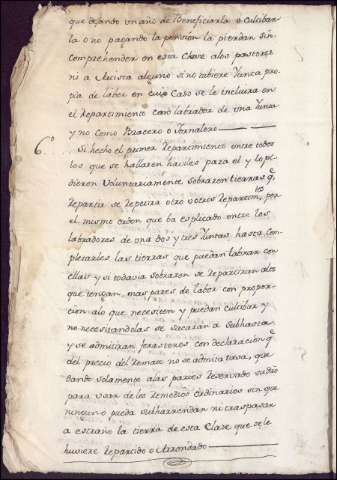 que dejando un año de Beneficiarla o culibar
la o no pagando la pension la pierdan sin
comprehender en esta clase a los pastores
ni a Artista alguno si no tubiere Yunta pro
pia de labor en cuio Caso se le incluira en
el Repartimiento como labrador de una Yunta
y no como Bracero o Jornalero
6.º Si hecho el primer Repartimiento entre todos
los que se hallaren haviles para el y lo pi
dieren Voluntariamente sobrazen tierras q.e
repartir se repetira otro u otros repartim.tos por
el mismo orden que ba esplicado entre los
labradores de una dos y tres Yuntas hasta com
pletarles las tierras que puedan labrar con
ellas y si todavia sobrazen se repartiran a los
que tengan mas pares de labor con propor
cion a lo que necesiten y puedan cultibar y
no necesitandolas se sacaran a subhasta
y se admitiran forasteros con declaracion q.e
del precio del Remate no se admita tasa, que
dando solamente a las partes reservado su dro
para usar de los remedios ordinarios sin que
ninguno pueda subharrendar ni traspasar
a estraño la tierra de esta Clase que se le
huviere repartido o Arrendado